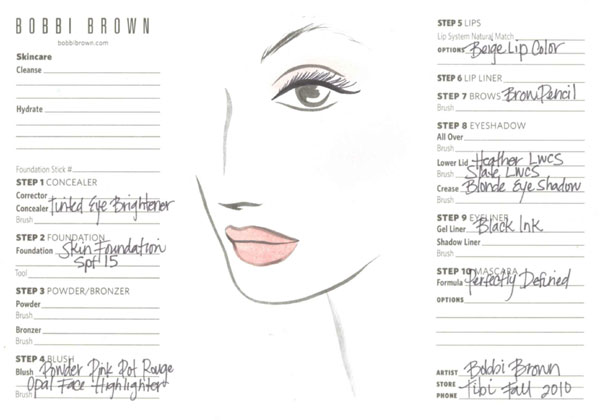 BOBBI BROWN
bobbibrown.com
Skincare
Cleanse
Hydrate
Foundation Stick #
STEP 1 CONCEALER
Corrector
Concealer Tinted Eye Brightener
Brush
STEP 2 FOUNDATION
Foundation Skin Foundation
Spf 15
Tool
STEP 3 POWDER/BRONZER
Powder
Brush
Bronzer
Brush
STEP 4 BLUSH
Blush Powder Pink Pot Rouge
Opal Face Highlighter
Brush
STEP 5 LIPS
Lip System Natural Match
OPTIONS Beige Lip Color
STEP 6 LIP LINER
STEP 7 BROWS Brow Pencil
Brush
STEP 8 EYESHADOW
All Over
Brush
Lower Lid Heather LWCS
Brush Slate LWCS
Crease Blonde Eye Shadow
Brush
STEP 9 EYELINER
Gel Liner Black Ink
Shadow Liner
Brush
STEP 10 MASCARA
Formula Perfectly Defined
OPTIONS
ARTIST Bobbi Brown
STORE Tibi Fall 2010
PHONE